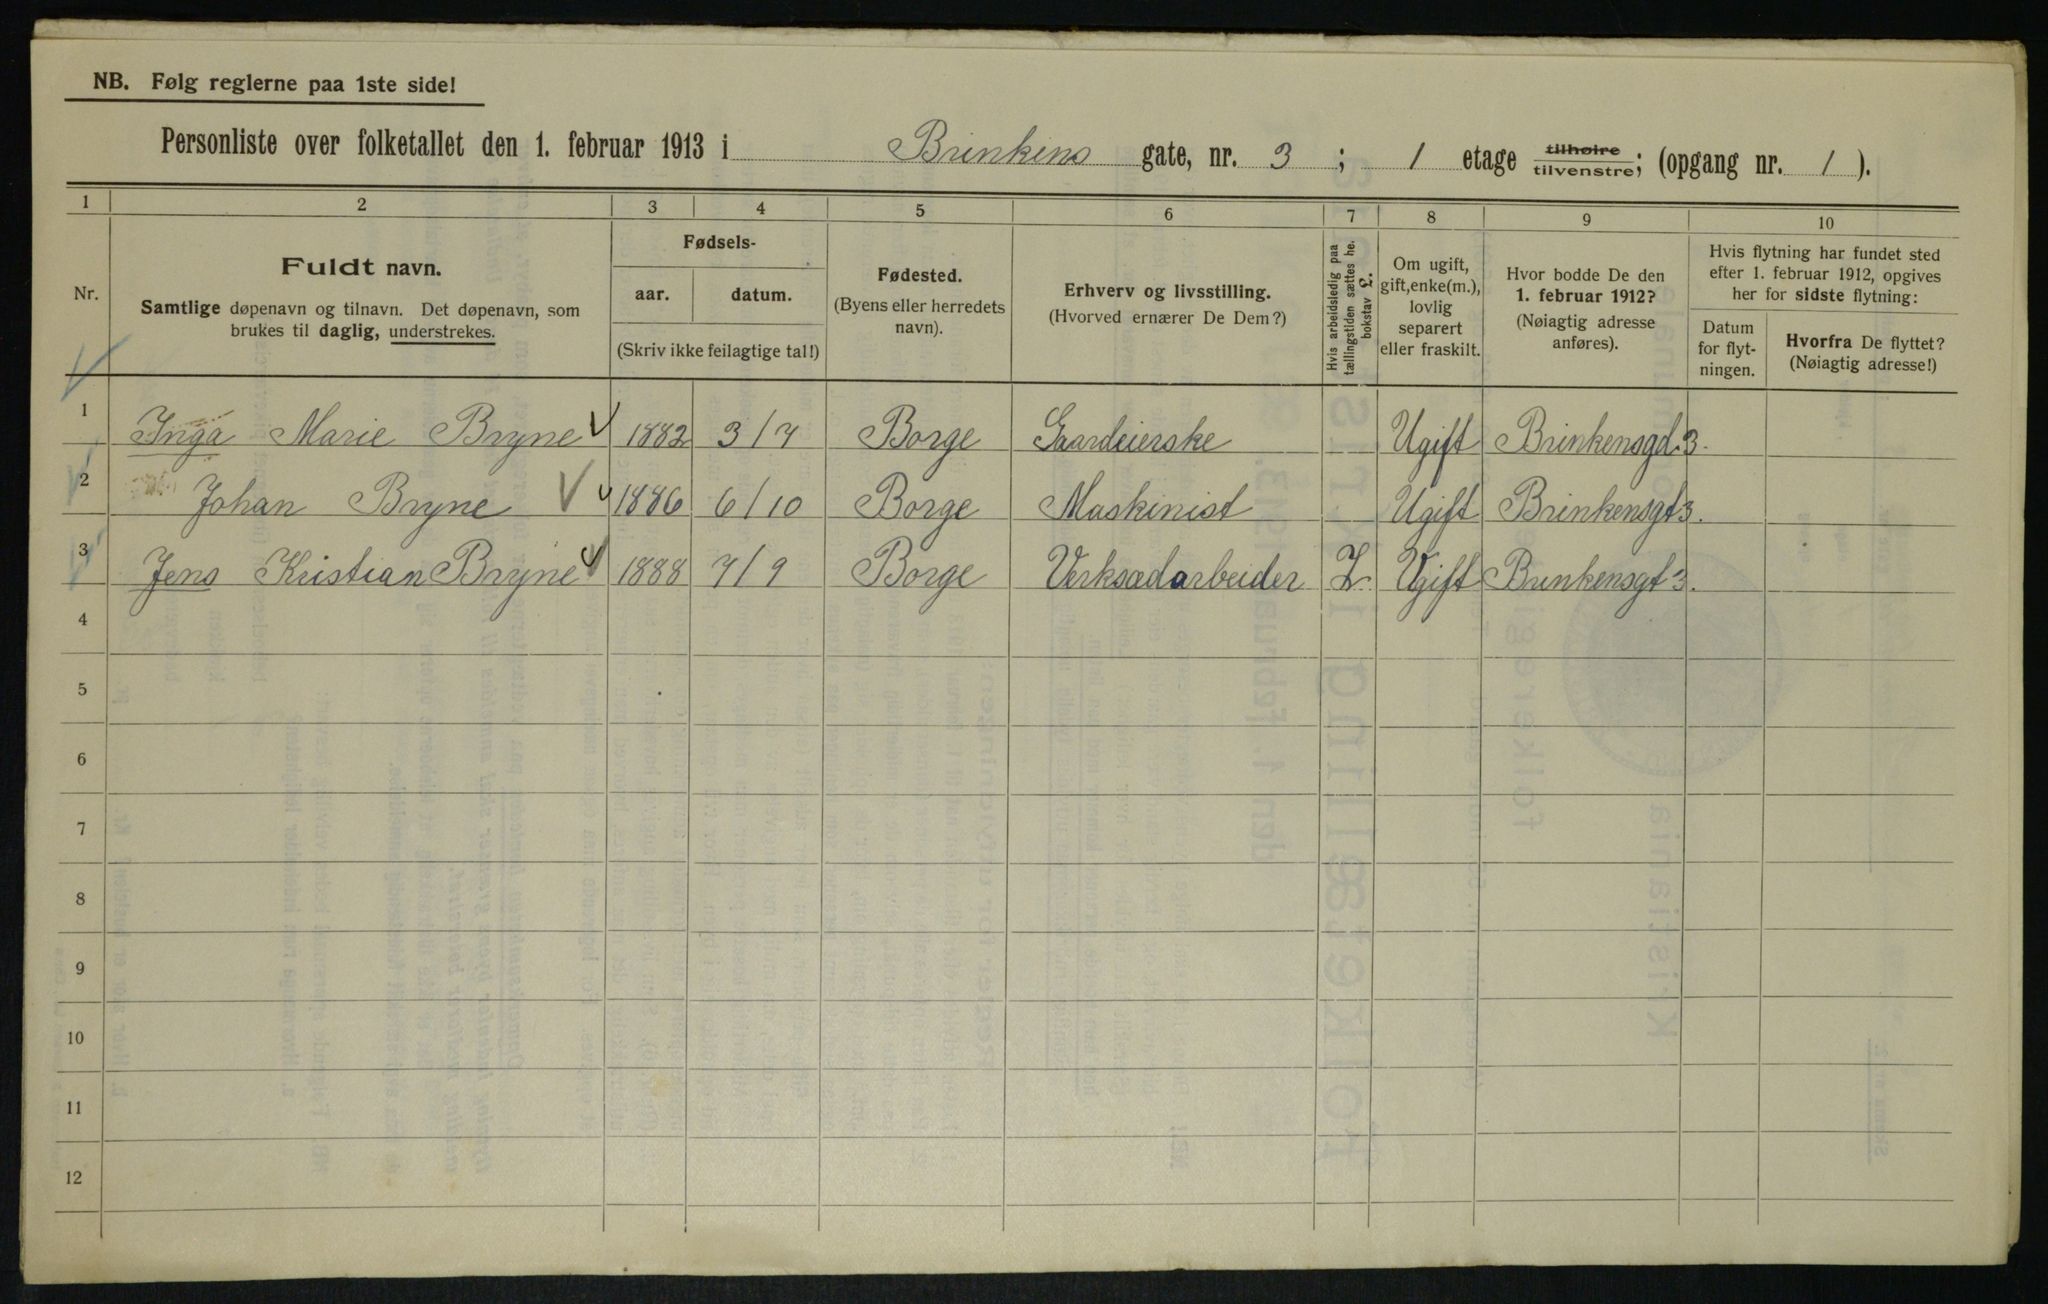 NB. Følg reglerne paa 1ste side!
Personliste over folketallet den 1. februar 1913 i Brinkens gate, nr. 3 ; 1 etage tilhøire tilvenstre; (opgang nr. 1 ).
1 2 3 4 5 6 7 8 9 10
Nr.
Fuldt navn.
Samtlige døpenavn og tilnavn. Det døpenavn, som
brukes til daglig, understrekes.
Fødsels-
aar. datum.
(Skriv ikke feilagtige tal!)
Fødested.
(Byens eller herredets
navn).
Erhverv og livsstilling.
(Hvorved ernærer De Dem?)
Hvis arbeidsledig paa
tællingstiden sættes he.
bokstav L.
Om ugift,
gift, enke(m.),
lovlig
separert
eller fraskilt.
Hvor bodde De den
1. februar 1912?
(Nøiagtig adresse
anføres).
Hvis flytning har fundet sted
efter 1. februar 1912, opgives
her for sidste flytning:
Datum
for flyt-
ningen.
Hvorfra De flyttet?
(Nøiagtig adresse!)
1 Inga Marie Bryne 1882 3/7 Borge Gaardeierske Ugift Brinkensgd. 3.
2 Johan Bryne 1886 6/10 Borge Maskinist Ugift Brinkensgt 3.
3 Jens Kristian Bryne 1888 7/9 Borge Verksædarbeider L Ugift Brinkensgt 3.
4
5
6
7
8
9
10
11
12